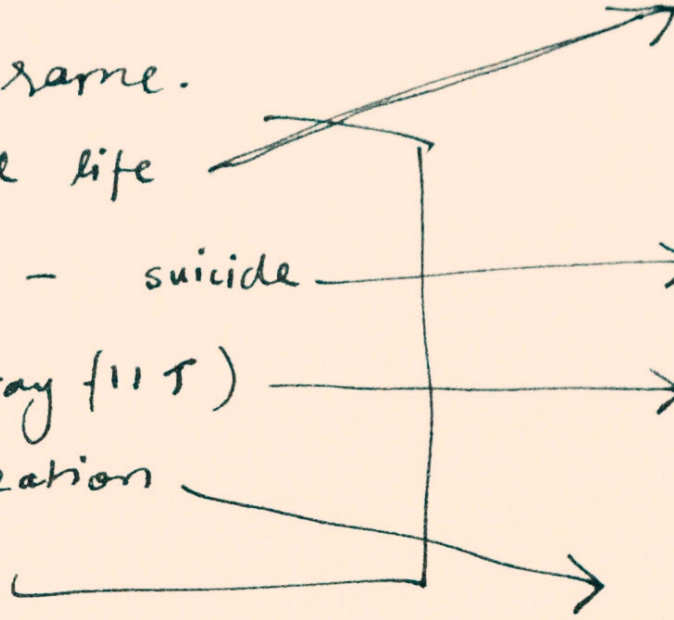 same.
life
- suicide
ay (IIT)
zation